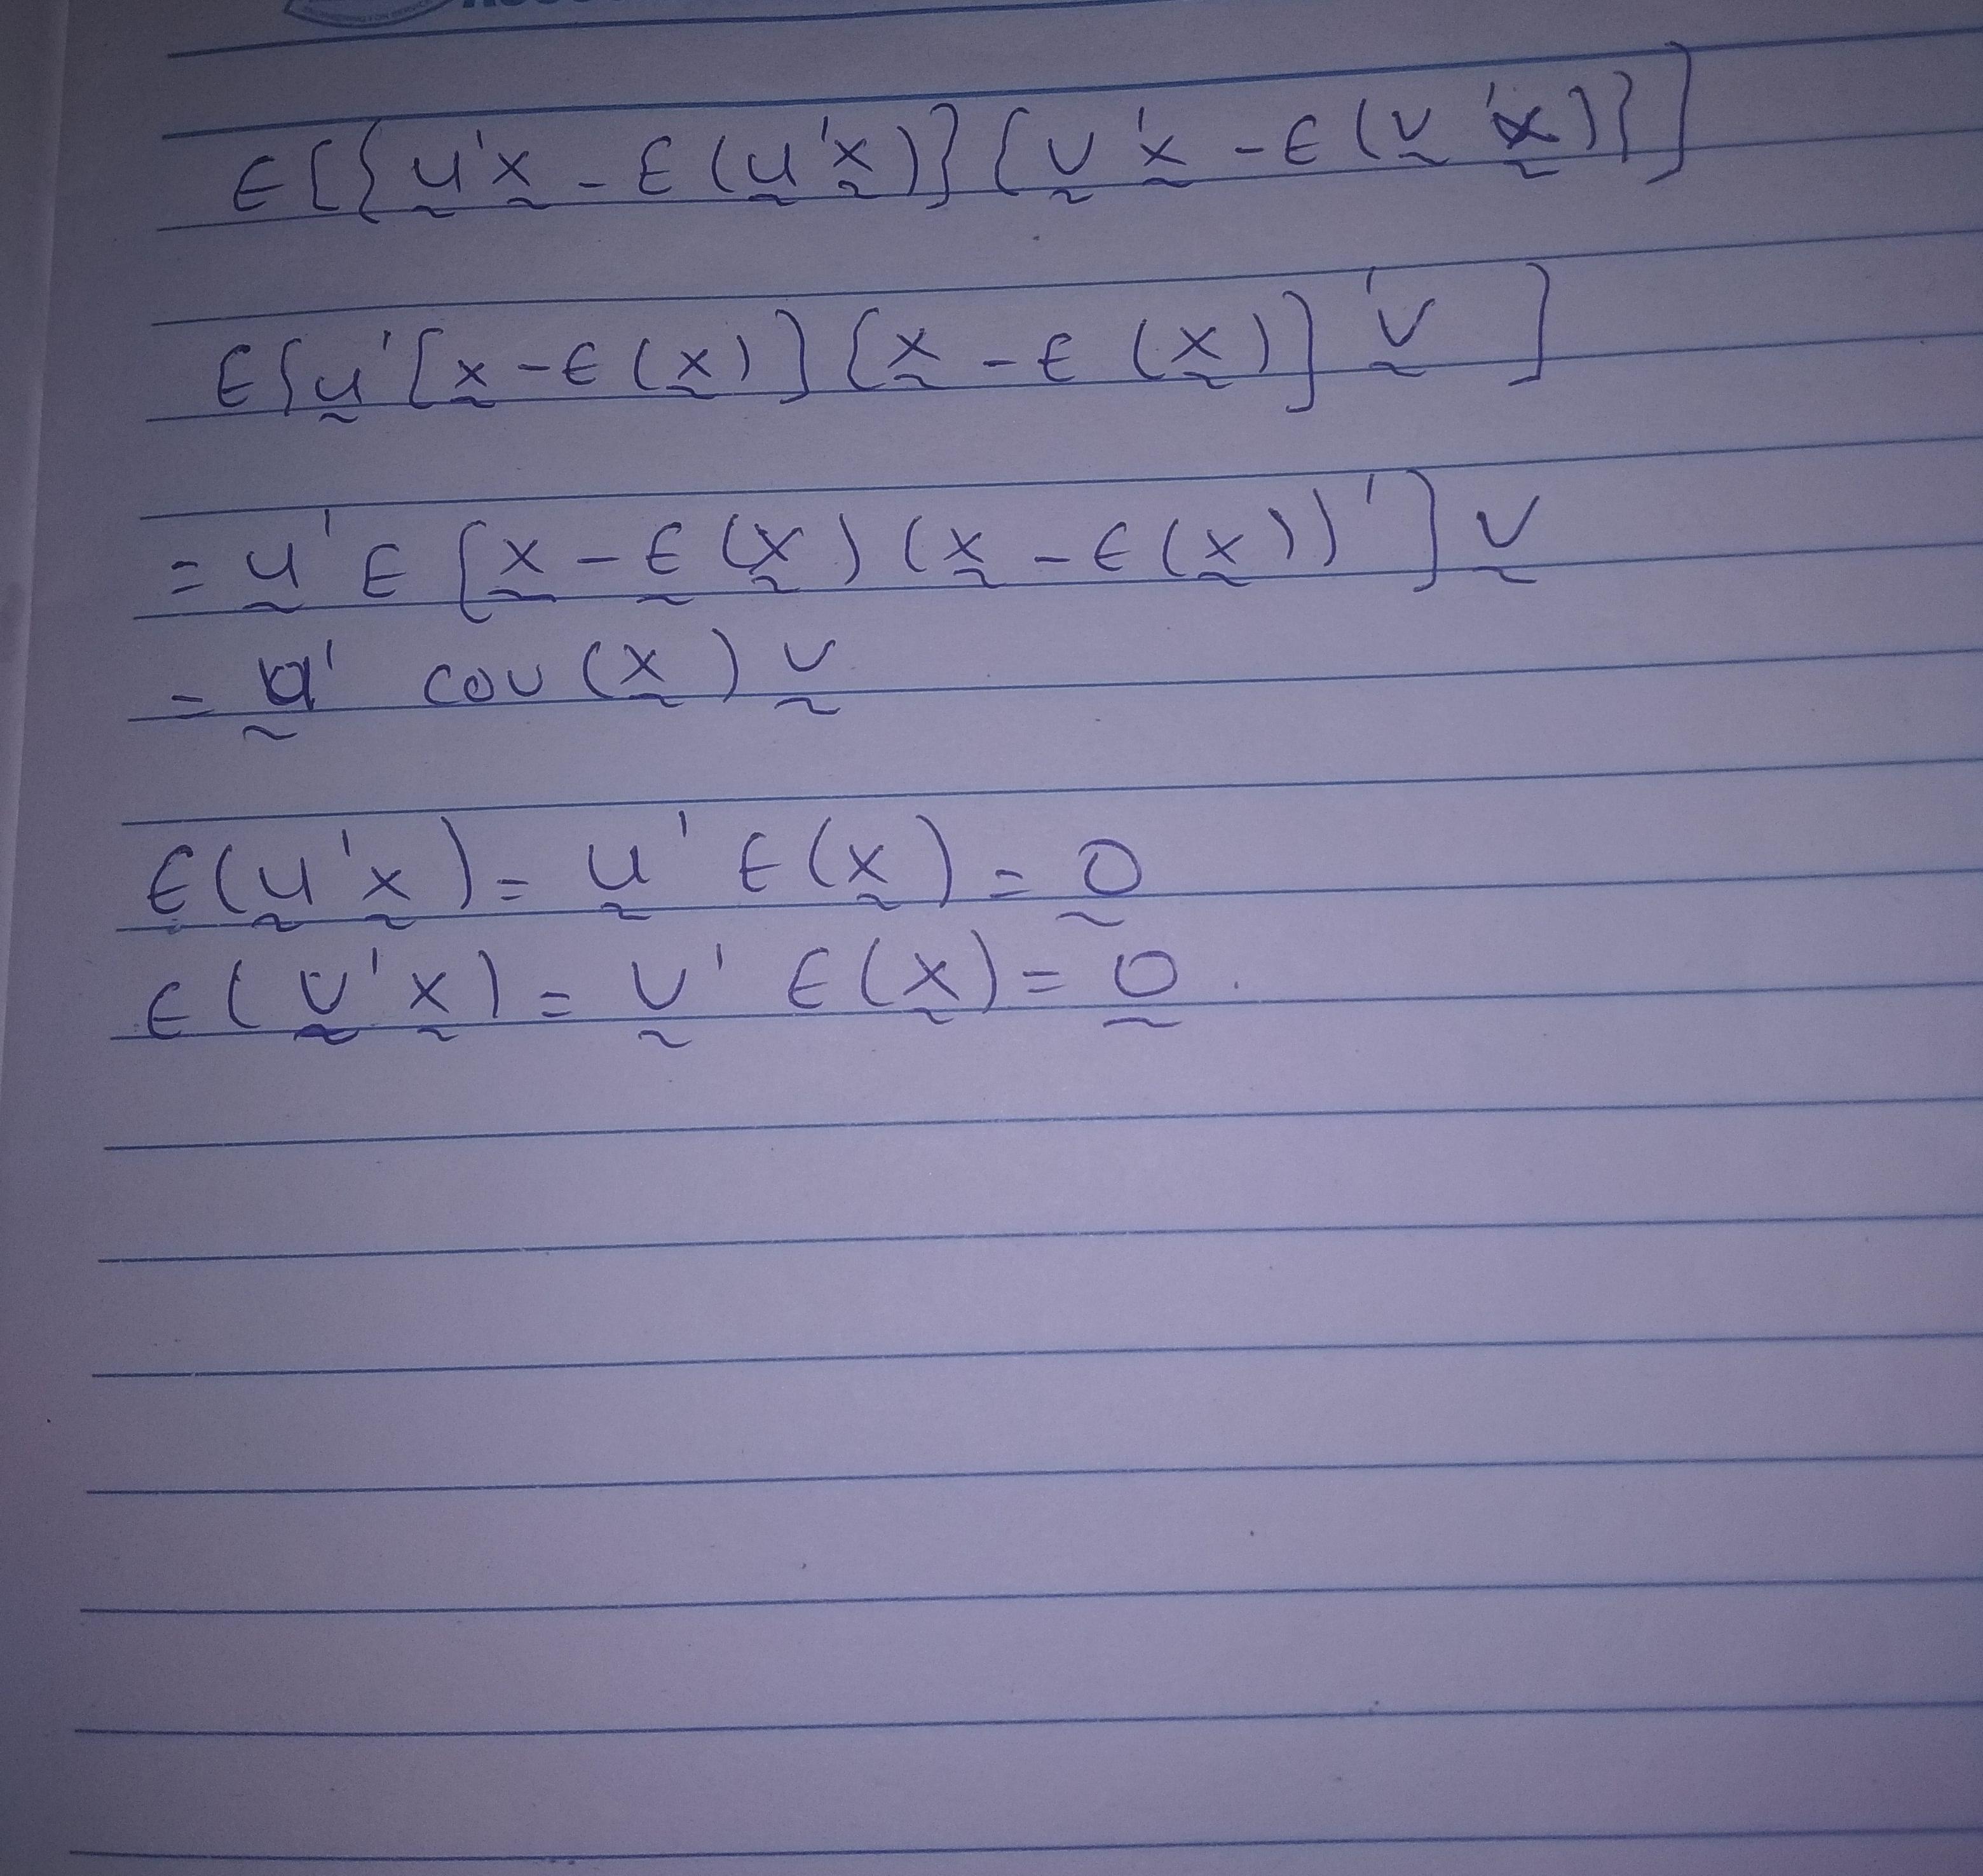 E[{u'x - E(u'x)}{v'x - E(v'x)}]
E{u'[x - E(x)][x - E(x)]'v]
= u' E[x - E(x)(x - E(x))']v
= u' cov(x) v
E(u'x) = u' E(x) = 0
E(v'x) = v' E(x) = 0.